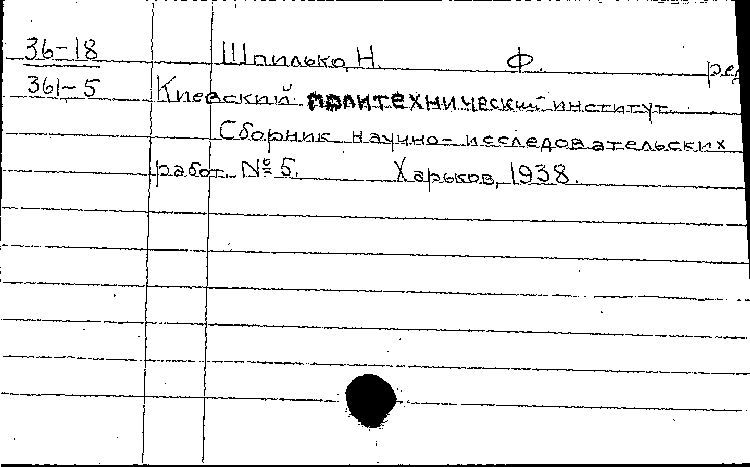 36-18 Шпилько, Н. Ф. ред
361-5 Киевский политехнический институт.
Сборник научно-исследовательских
работ. № 5. Харьков, 1938.